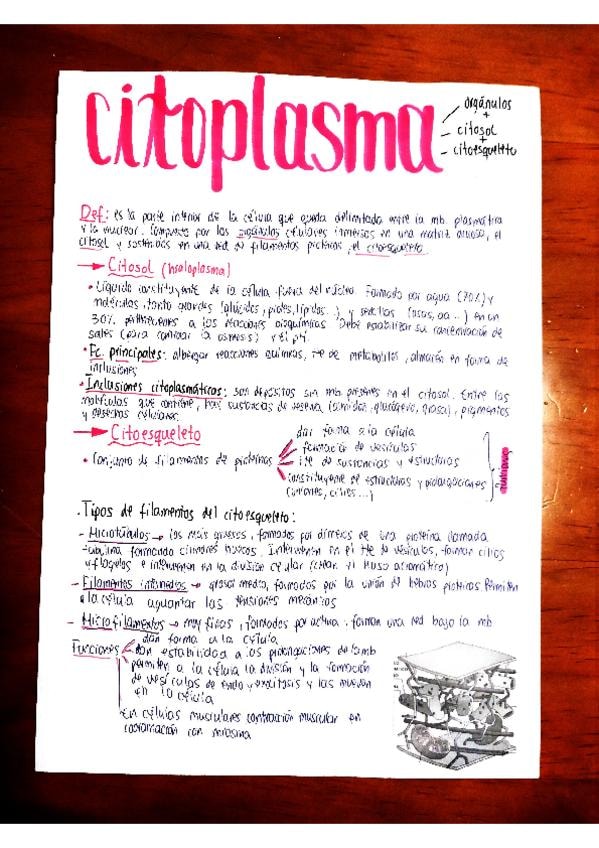 citoplasma
orgánulos
+
citosol
+
citoesqueleto
Def: es la parte interior de la célula que queda delimitada entre la mb. plasmática
y la nuclear. Compuesto por los orgánulos celulares inmersos en una matriz acuosa, el
citosol y sostenidos en una red de filamentos proteicos, el citoesqueleto.
→ Citosol (hialoplasma)
• Líquido constituyente de la célula fuera del núcleo. Formado por agua (70%) y
moléculas, tanto grandes (glúcidos, prots, lípidos...) y sencillas (osas, aa...) en un
30% pertenecientes a las reacciones bioquímicas. Debe estabilizar su concentración de
sales (para controlar la osmosis) y el pH.
• Fc. principales: albergar reacciones químicas, tte de metabolitos, almacén en forma de
inclusiones
• Inclusiones citoplasmáticas: son depósitos sin mb. presentes en el citosol. Entre las
moléculas que contiene, hay sustancias de reserva (almidón, glucógeno, grasa), pigmentos
y desechos celulares.
→ Citoesqueleto
• Conjunto de filamentos de proteínas
dar forma a la célula
formación de vesículas
tte de sustancias y estructuras
constituyente de estructuras y prolongaciones
(centriolos, cilios...)
funciones
· Tipos de filamentos del citoesqueleto:
- Microtúbulos → los más gruesos, formados por dímeros de una proteína llamada
tubulina formando cilindros huecos. Intervienen en el tte de vesículos, forman cilios
y flagelos e intervienen en la división celular (crean el huso acromático)
- Filamentos intermedios → grosor medio, formados por la unión de hebras proteicas. Permiten
a la célula aguantar las tensiones mecánicas
- Microfilamentos → muy finos, formados por actina. forman una red bajo la mb
Funciones
dan forma a la célula
dan estabilidad a las prolongaciones de la mb
permiten a la célula la división y la formación
de vesículas de endo y exocitosis y las mueven
en la célula
En células musculares contracción muscular en
coordinación con miosina